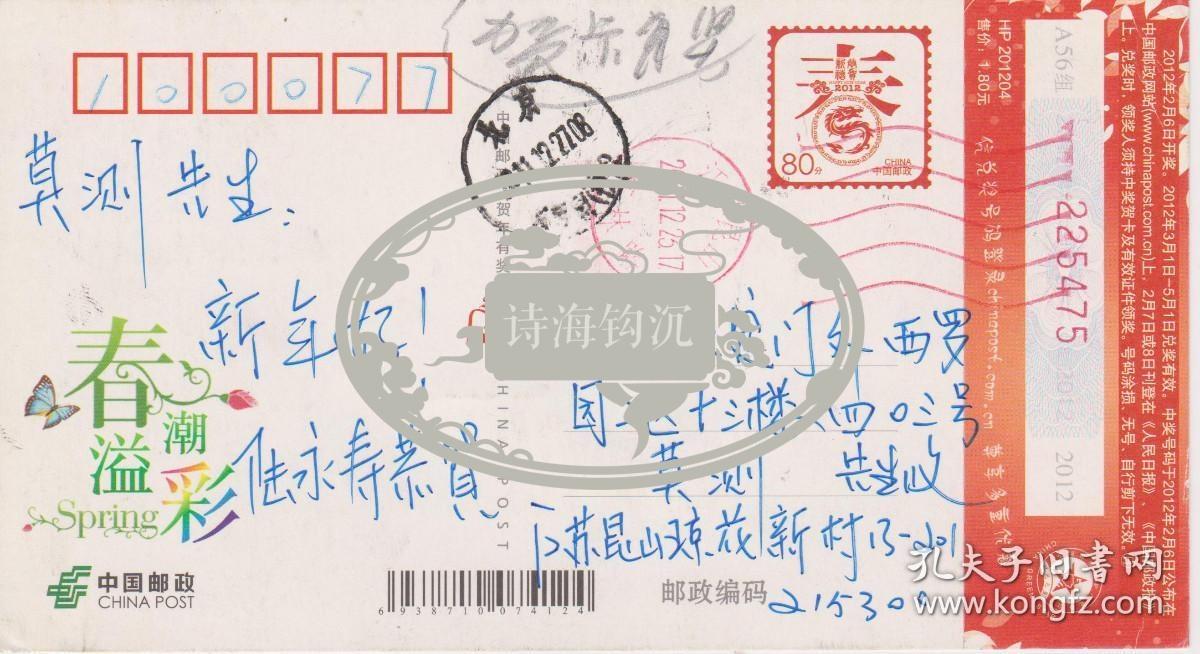 100077
贺卡有奖
莫测先生:
新年好!
陆永寿恭贺
北京
2011.12.27.08
2011.12.25.17
新禧
2012
80分
CHINA
中国邮政
门外西罗
园二区十三楼
四〇三号
莫测 先生收
江苏昆山琼花新村13-201
邮政编码
215300
春
潮
溢
彩
Spring
中国邮政
CHINA POST
6 938710 074124
CHINA POST
诗海钩沉
HP 201204
售价:1.80元
A56组
225475
2012
2012年2月6日开奖。2012年3月1日-5月1日兑奖有效。中奖号码于2012年2月6日公布在
中国邮政网站(www.chinapost.com.cn)上,2月7日或8日刊登在《人民日报》、《中国邮政报》
上。兑奖时,领奖人须持中奖贺卡及有效证件领奖。号码涂损、无号、自行剪下无效。
孔夫子旧书网
www.kongfz.com